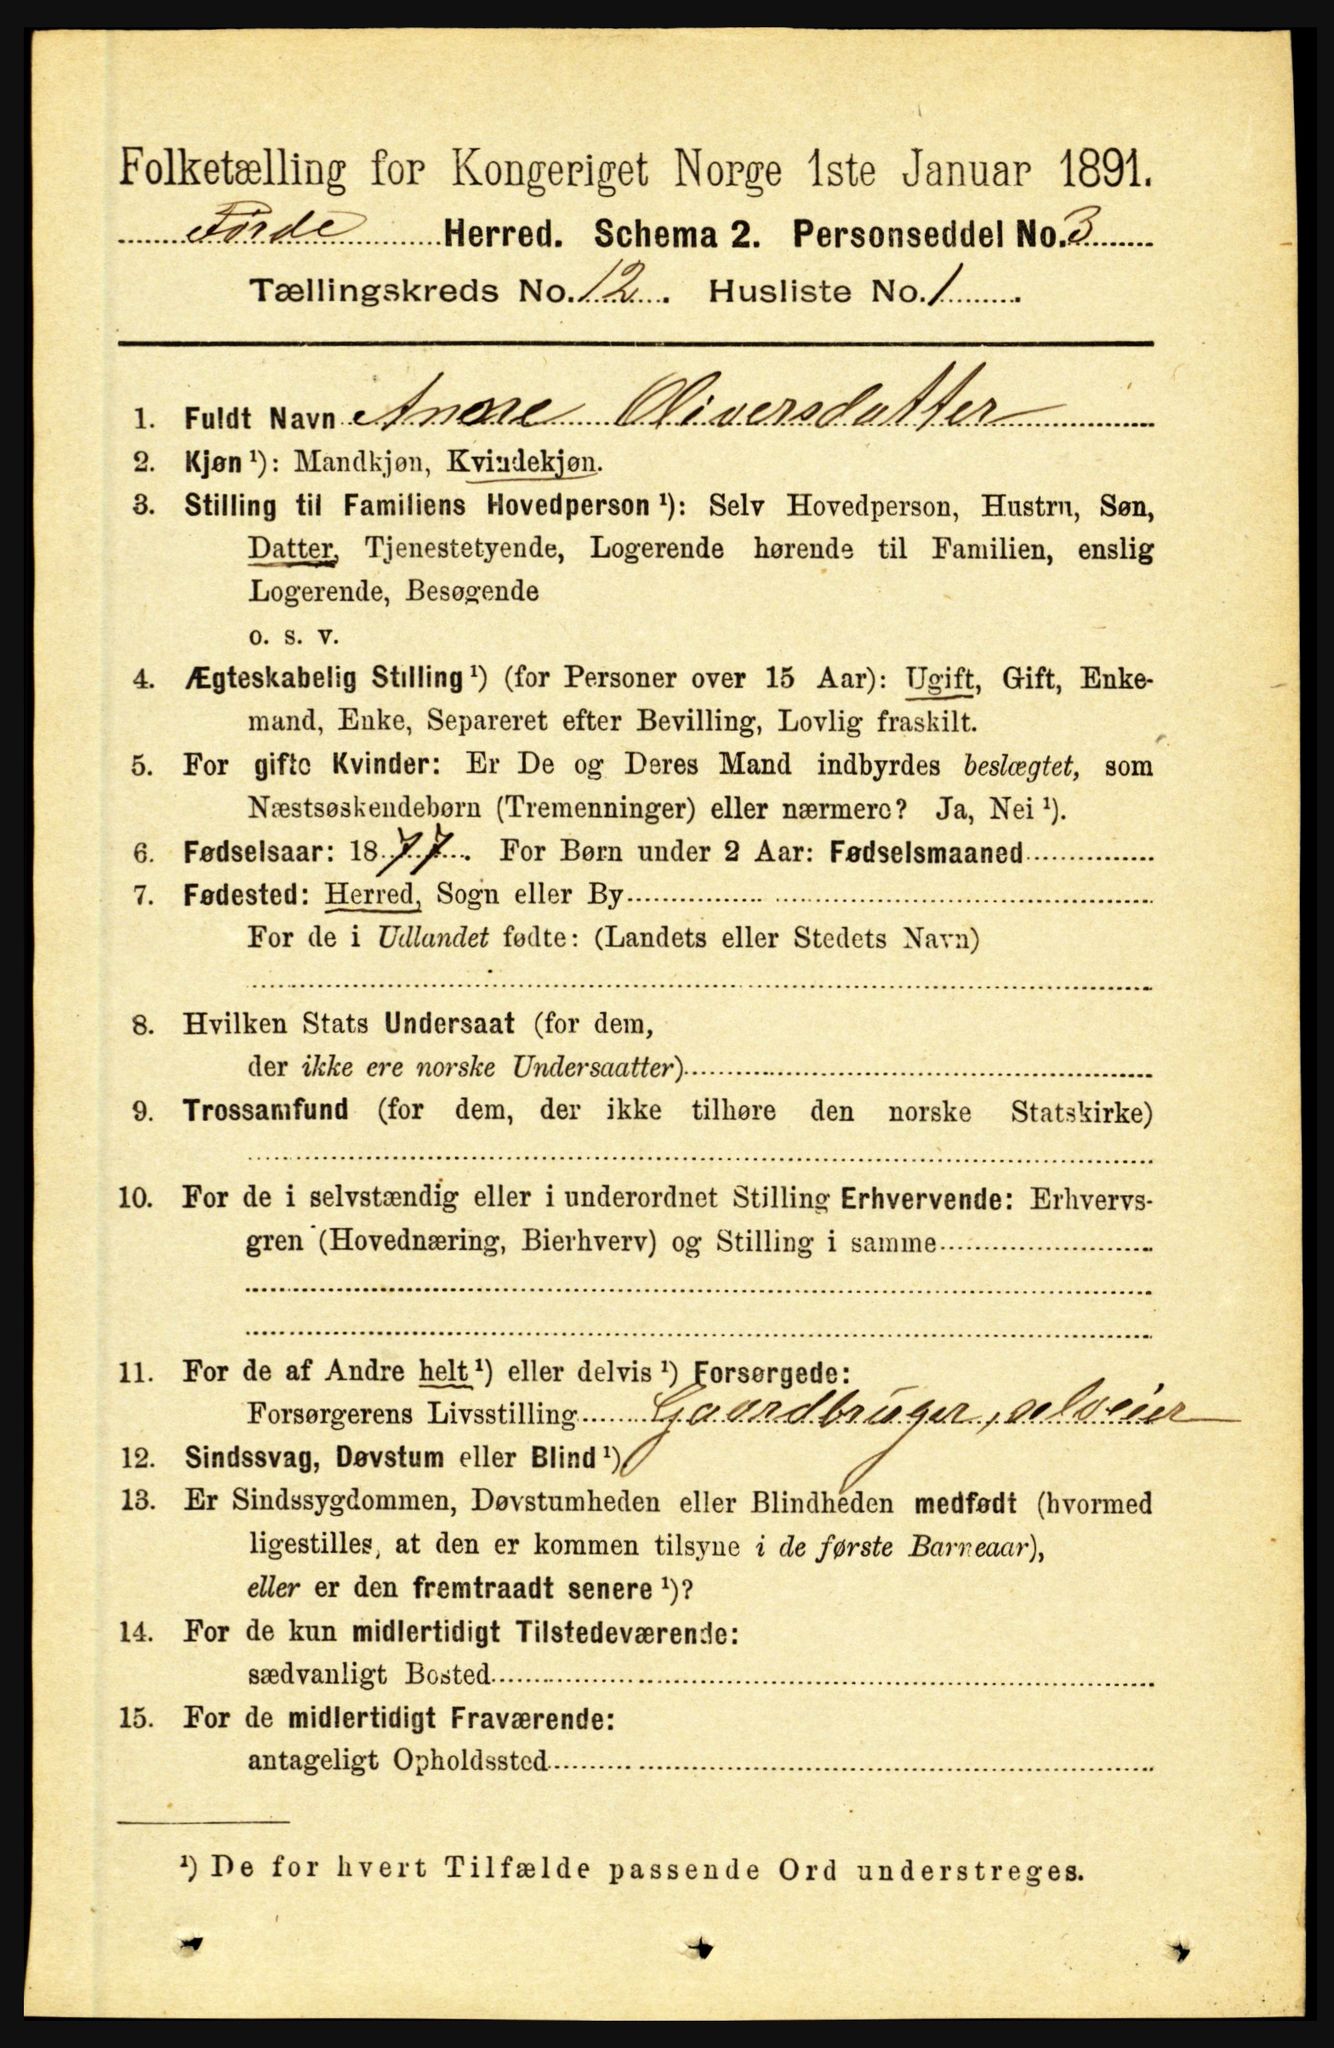 Folketælling for Kongeriget Norge 1ste Januar 1891.
Førde Herred. Schema 2. Personseddel No. 3
Tællingskreds No. 12. Husliste No. 1.
1. Fuldt Navn Anne Oliversdatter
2. Kjøn ¹): Mandkjøn, Kvindekjøn.
3. Stilling til Familiens Hovedperson ¹): Selv Hovedperson, Hustru, Søn,
Datter, Tjenestetyende, Logerende hørende til Familien, enslig
Logerende, Besøgende
o. s. v.
4. Ægteskabelig Stilling ¹) (for Personer over 15 Aar): Ugift, Gift, Enke-
mand, Enke, Separeret efter Bevilling, Lovlig fraskilt.
5. For gifte Kvinder: Er De og Deres Mand indbyrdes beslægtet, som
Næstsøskendebørn (Tremenninger) eller nærmere? Ja, Nei ¹).
6. Fødselsaar: 1877. For Børn under 2 Aar: Fødselsmaaned
7. Fødested: Herred, Sogn eller By
For de i Udlandet fødte: (Landets eller Stedets Navn)
8. Hvilken Stats Undersaat (for dem,
der ikke ere norske Undersaatter)
9. Trossamfund (for dem, der ikke tilhøre den norske Statskirke)
10. For de i selvstændig eller i underordnet Stilling Erhvervende: Erhvervs-
gren (Hovednæring, Bierhverv) og Stilling i samme
11. For de af Andre helt ¹) eller delvis ¹) Forsørgede:
Forsørgerens Livsstilling Gaardbruger, selveier
12. Sindssvag, Døvstum eller Blind ¹)
13. Er Sindssygdommen, Døvstumheden eller Blindheden medfødt (hvormed
ligestilles, at den er kommen tilsyne i de første Barneaar),
eller er den fremtraadt senere ¹)?
14. For de kun midlertidigt Tilstedeværende:
sædvanligt Bosted
15. For de midlertidigt Fraværende:
antageligt Opholdssted
¹) De for hvert Tilfælde passende Ord understreges.